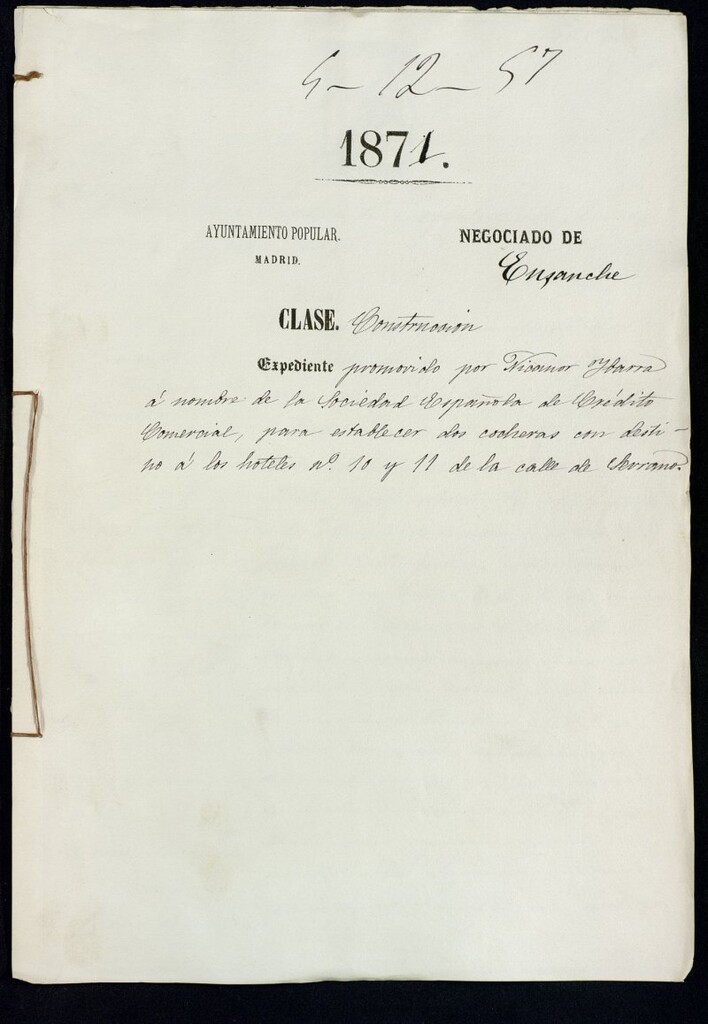 5-12-57
1871.
AYUNTAMIENTO POPULAR.
MADRID.
NEGOCIADO DE
Ensanche
CLASE. Construccion
Expediente promovido por Nicanor Ybarra
á nombre de la Sociedad Española de Crédito
Comercial, para establecer dos cocheras con desti-
no á los hoteles nº. 10 y 11 de la calle de Serrano.